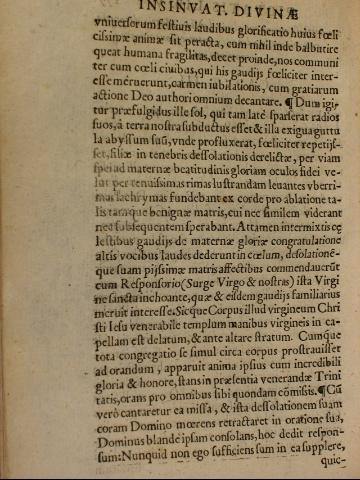 INSINVAT. DIVINÆ
vniuersorum festiuis laudibus glorificatio huius fœli
cissimæ animæ sit peracta, cum nihil inde balbutire
queat humana fragilitas, decet proinde, nos communi
ter cum cœli ciuibus, qui his gaudijs fœliciter inter-
esse meruerunt, carmen iubilationis, cum gratiarum
actione Deo authori omnium decantare. ¶ Dum igi-
tur præfulgidus ille sol, qui tam latè sparserat radios
suos, à terra nostra subductus esset & illa exigua guttu
la abyssum suũ, vnde profluxerat, fœliciter repetijs-
set, filiæ in tenebris dessolationis derelictæ, per viam
spei ad maternæ beatitudinis gloriam oculos fidei ve-
lut per tenuissimas rimas lustrandam leuantes vberri-
mas lachrymas fundebant ex corde pro ablatione ta-
lis tamque benignæ matris, cui nec similem viderant
nec subsequentem sperabant. Attamen intermixtis cę
lestibus gaudijs de maternæ gloriæ congratulatione
altis vocibus laudes dederunt in cœlum, desolationẽ-
que suam pijssimæ matris affectibus commendauerũt
cum Responsorio (Surge Virgo & nostras) ista Virgi
ne sancta inchoante, quæ & eisdem gaudijs familiarius
meruit interesse. Sicque Corpus illud virgineum Chri
sti Iesu venerabile templum manibus virgineis in ca-
pellam est delatum, & ante altare stratum. Cumque
tota congregatio se simul circa corpus prostrauisset
ad orandum, apparuit anima ipsius cum incredibili
gloria & honore, stans in præsentia venerandæ Trini
tatis, orans pro omnibus sibi quondam cõmissis. ¶ Cũ
verò cantaretur ea missa, & ista dessolationem suam
coram Domino mœrens retractaret in oratione sua,
Dominus blande ipsam consolans, hoc dedit respon-
sum: Nunquid non ego sufficiens sum in ea supplere,
quic-